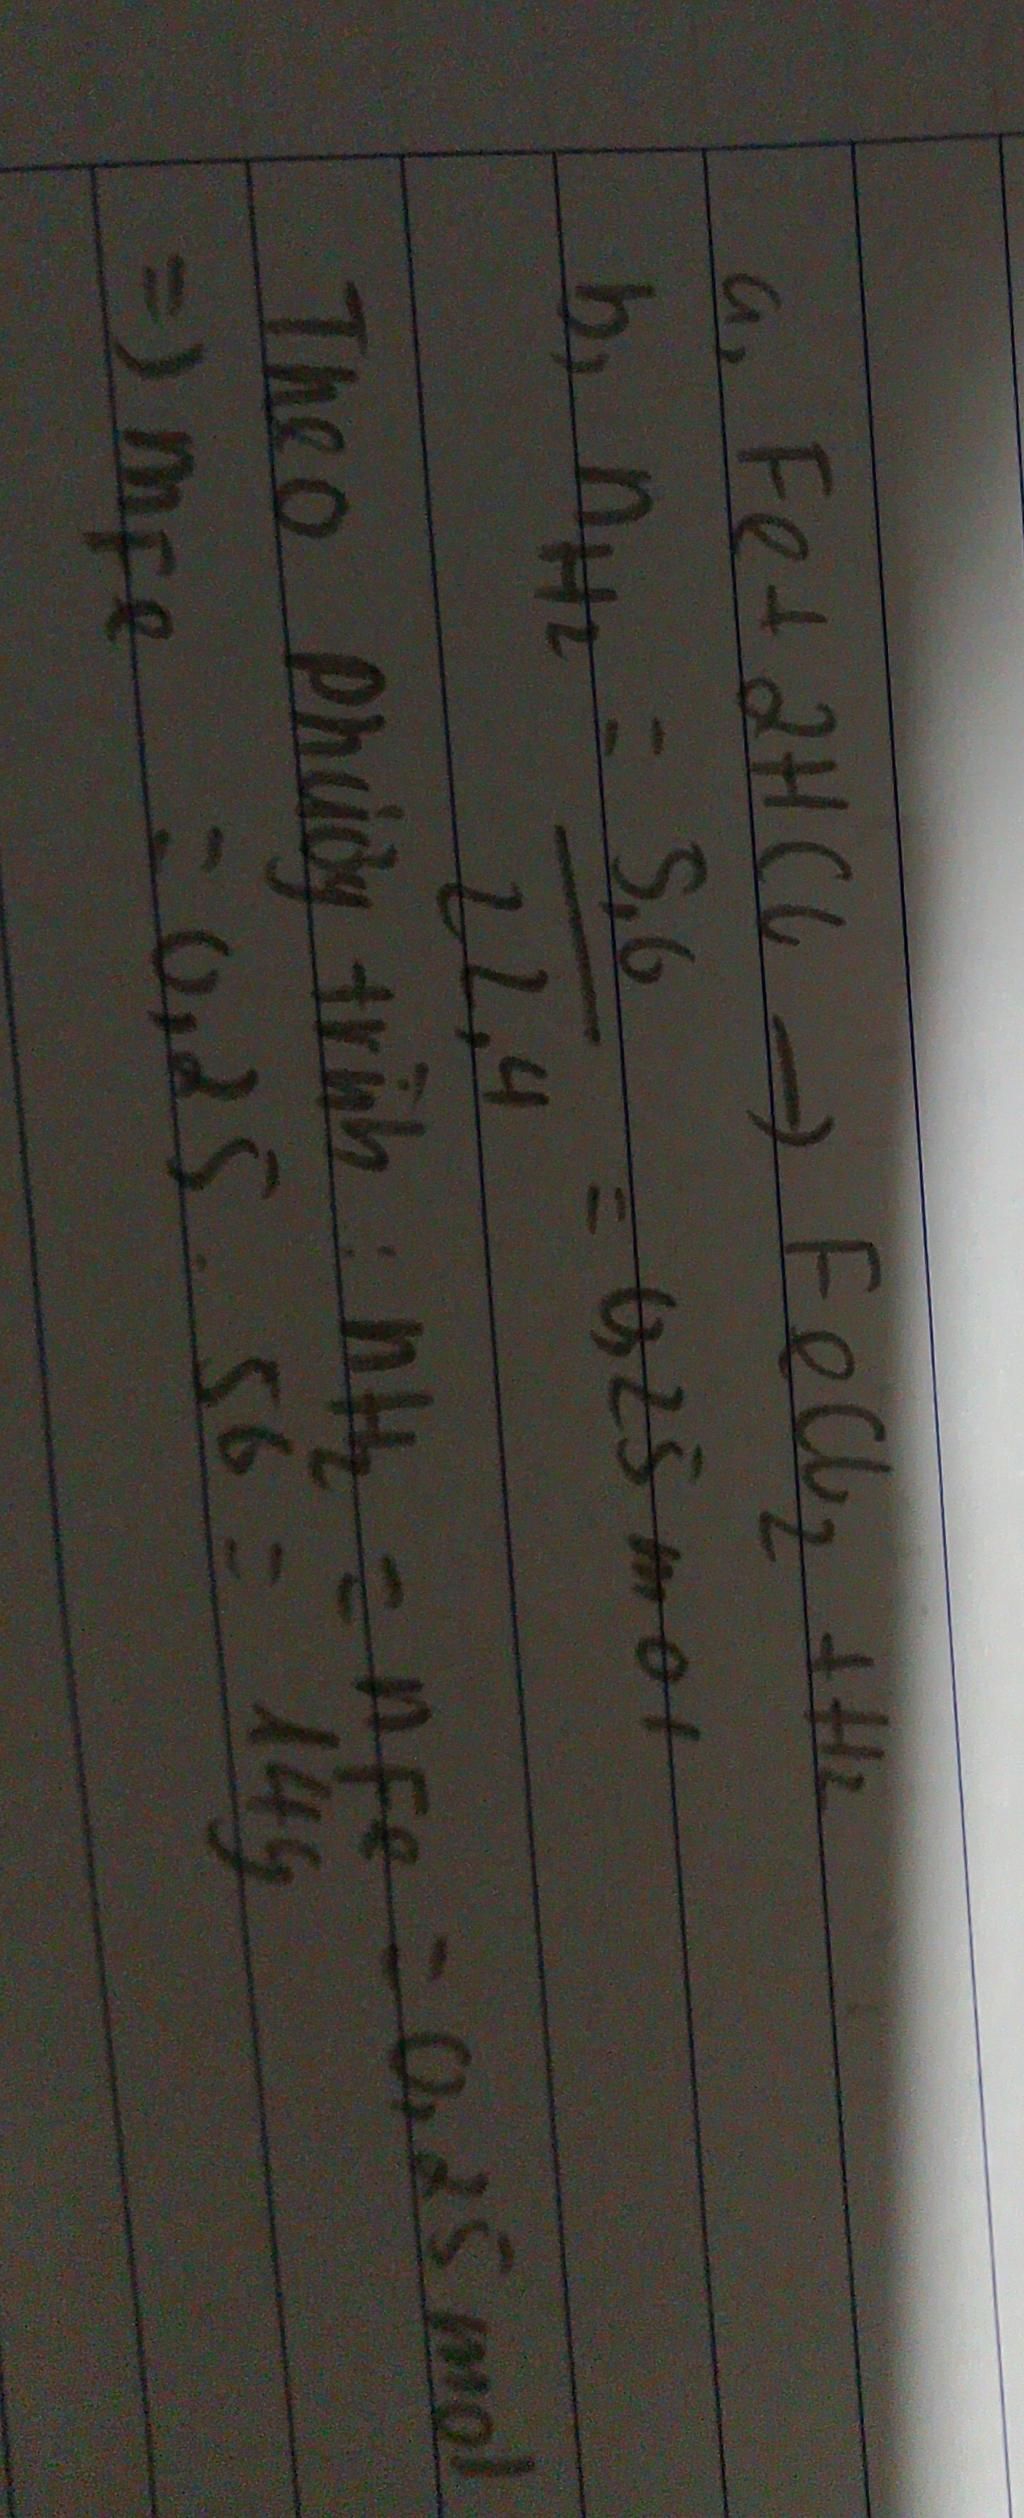 a, Fe + 2HCl → FeCl2 + H2
b, nH2 = 5,6 / 22,4 = 0,25 mol
Theo phương trình : nH2 = nFe = 0,25 mol
=) mFe = 0,25 . 56 = 14g